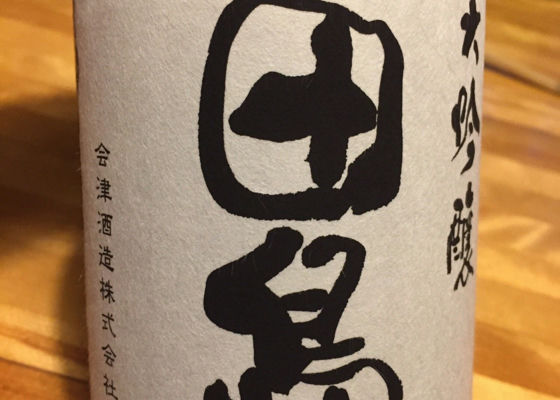 大吟醸
田島
会津酒造株式会社